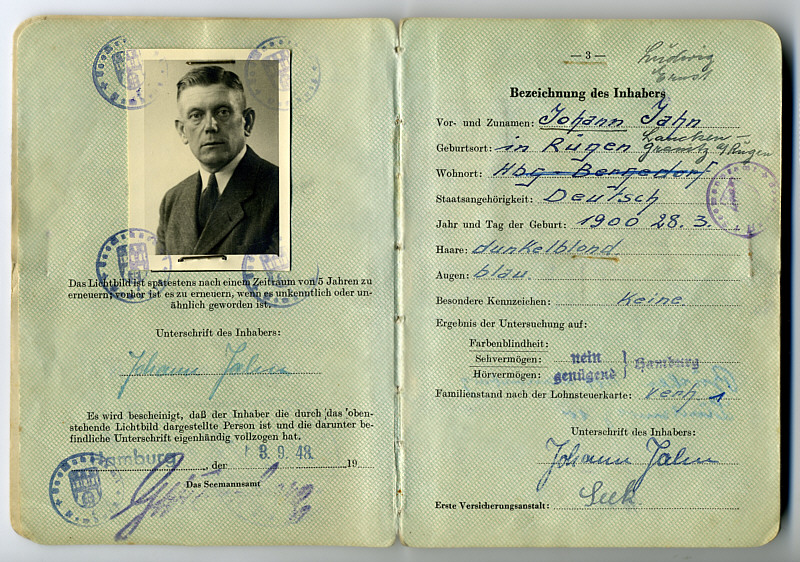 Das Lichtbild ist spätestens nach einem Zeitraum von 5 Jahren zu
erneuern; vorher ist es zu erneuern, wenn es unkenntlich oder un-
ähnlich geworden ist.
Unterschrift des Inhabers:
Johann Jahn
Es wird bescheinigt, daß der Inhaber die durch das oben-
stehende Lichtbild dargestellte Person ist und die darunter be-
findliche Unterschrift eigenhändig vollzogen hat.
Hamburg, der 8. 9. 48. 19
Das Seemannsamt
— 3 —
Ludwig
Ernst
Bezeichnung des Inhabers
Vor- und Zunamen: Johann Jahn
Lancken-
Geburtsort: in Rügen Granitz a/Rügen
Wohnort: Hbg - Bergedorf
Staatsangehörigkeit: Deutsch
Jahr und Tag der Geburt: 1900 28.3.
Haare: dunkelblond
Augen: blau
Besondere Kennzeichen: Keine
Ergebnis der Untersuchung auf:
Farbenblindheit:
Sehvermögen: nein
Hörvermögen: genügend } Hamburg
Familienstand nach der Lohnsteuerkarte: verh 1
Unterschrift des Inhabers:
Johann Jahn
Seek.
Erste Versicherungsanstalt: